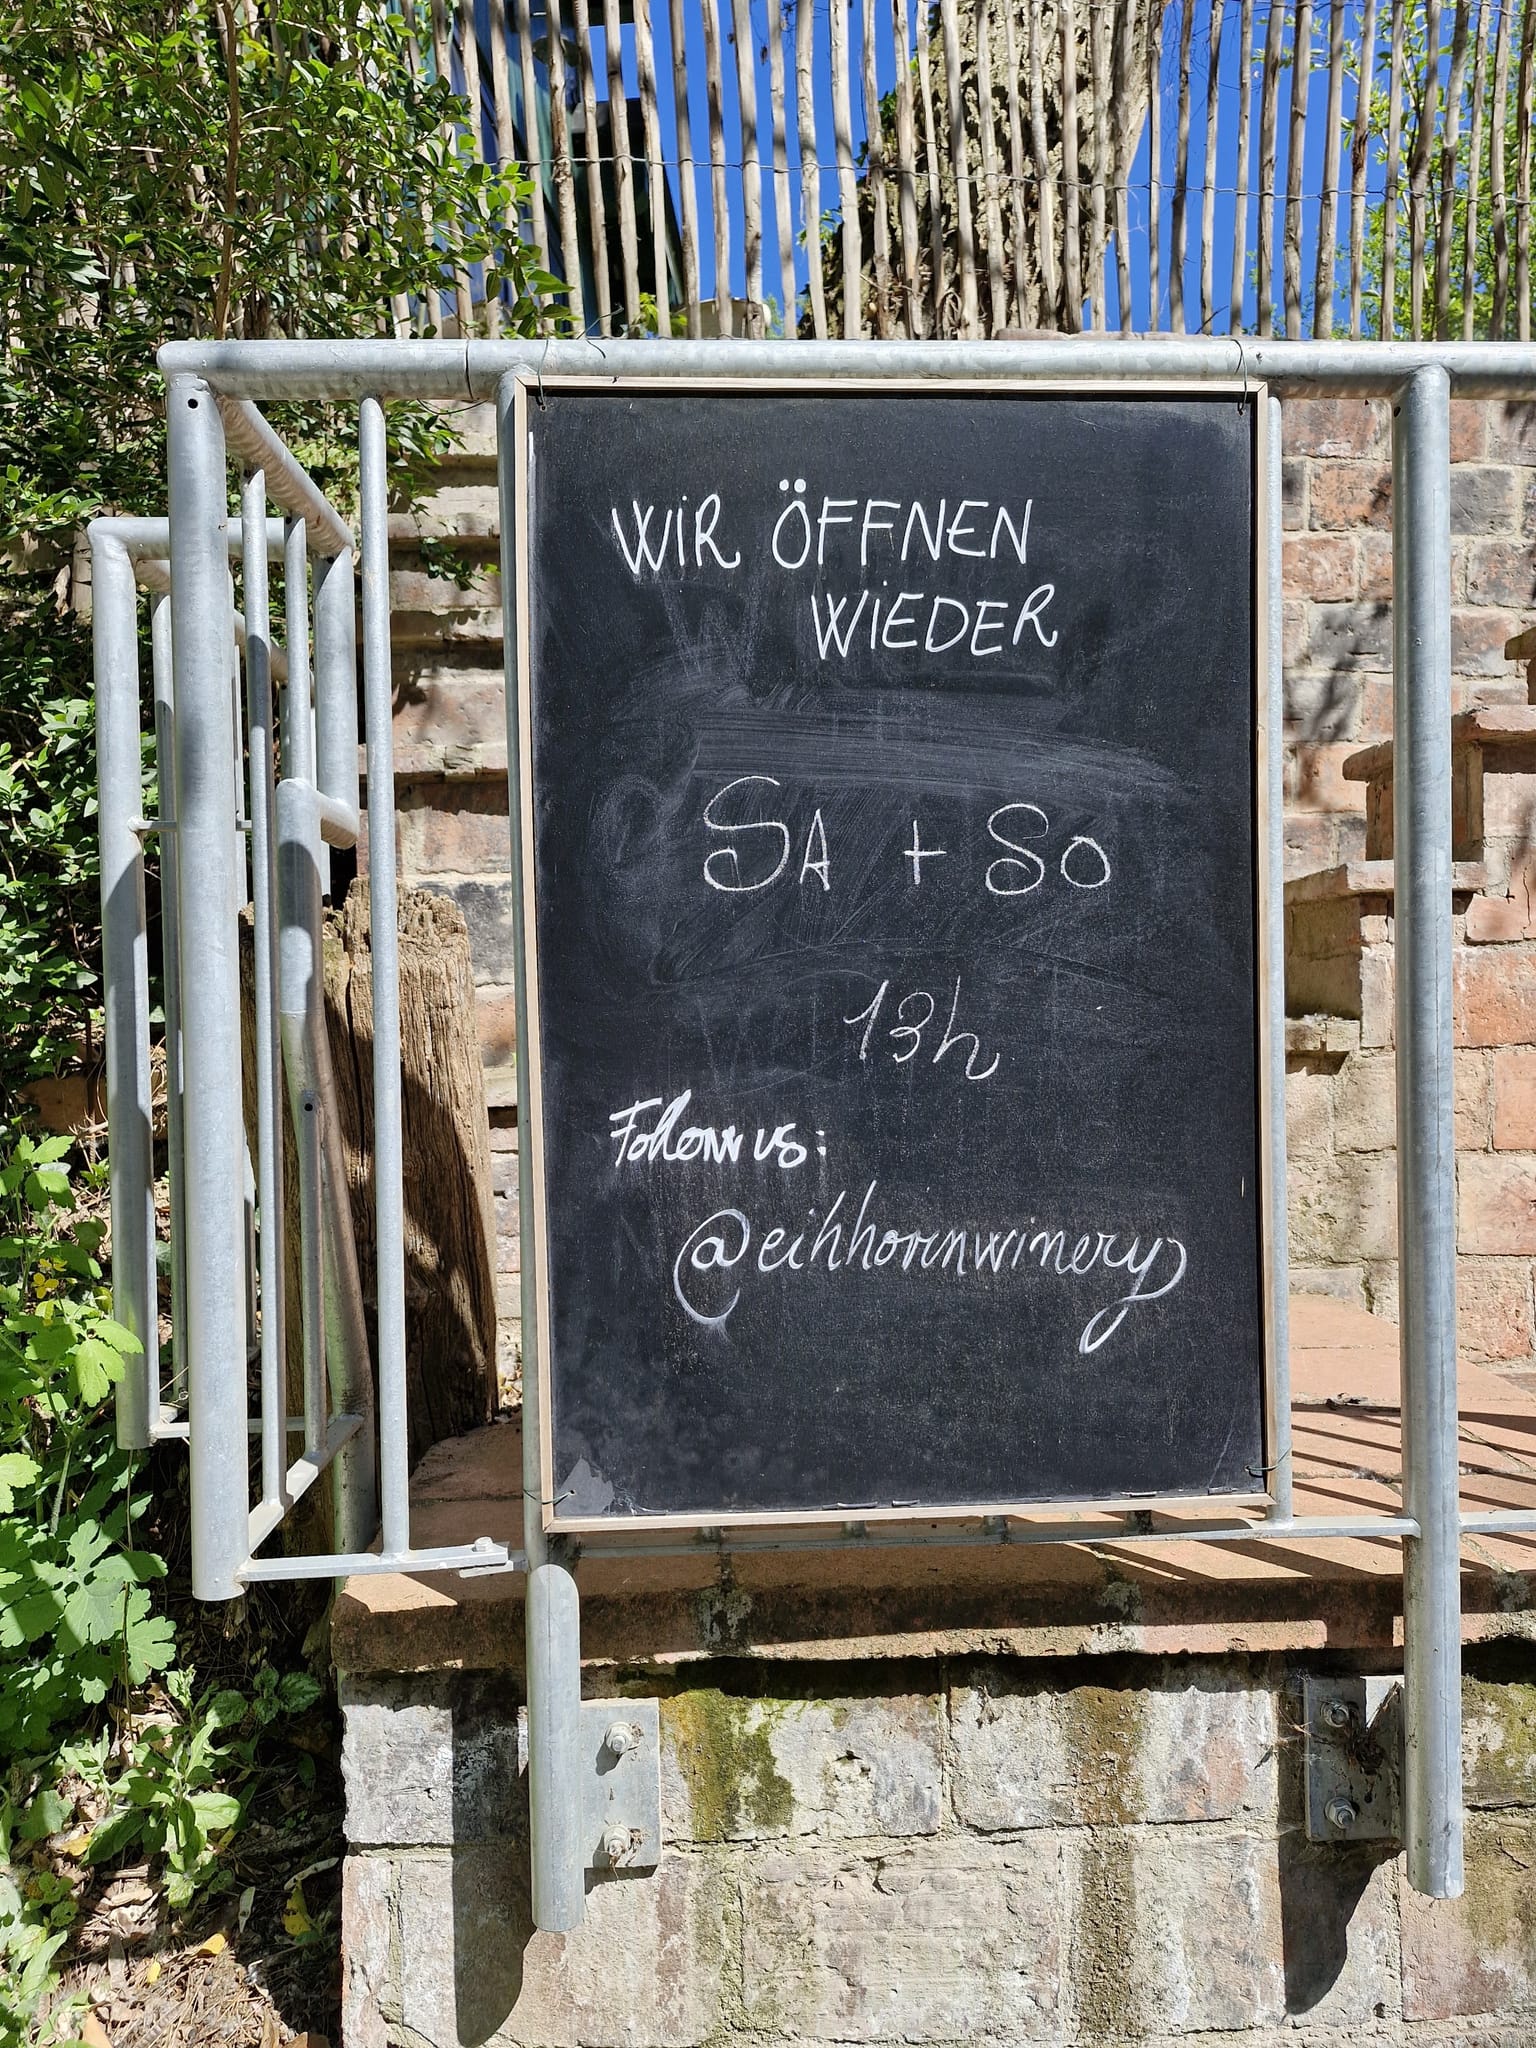 WIR ÖFFNEN
WIEDER
SA + SO
13h
Follow us:
@eihhornwinery